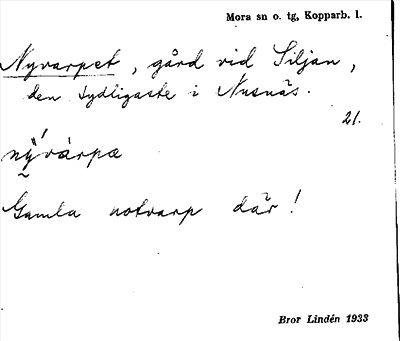 Mora sn o. tg, Kopparb. l.
Nyvarpet, gård vid Siljan,
den sydligaste i Nusnäs.
21.
nỳ'várpa
Gamla notvarp där!
Bror Lindén 1933